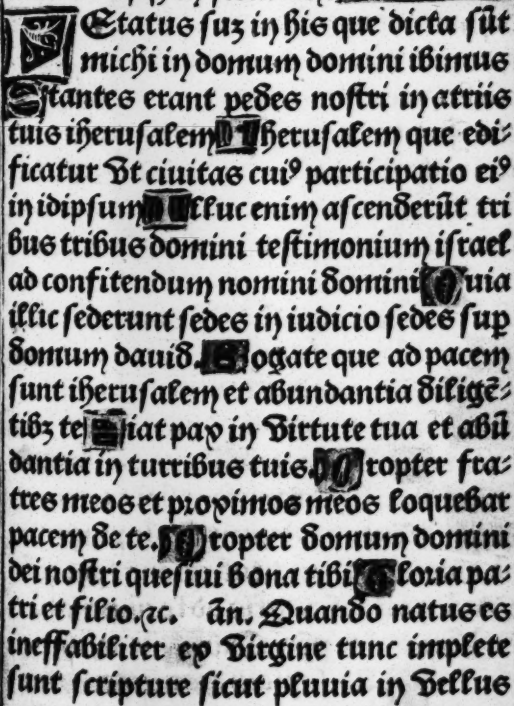 LEtatus suꝫ in his que dicta sūt
michi in domum domini ibimus
Stantes erant pedes nostri in atriis
tuis iherusalem Iherusalem que edi-
ficatur vt ciuitas cuiꝰ participatio eiꝰ
in idipsum Illuc enim ascenderūt tri
bus tribus domini testimonium israel
ad confitendum nomini domini Quia
illic sederunt sedes in iudicio sedes suꝑ
domum dauid. Rogate que ad pacem
sunt iherusalem et abundantia diligē-
tibꝫ te Fiat pax in virtute tua et abū
dantia in turribus tuis. Propter fra-
tres meos et proximos meos loquebar
pacem de te. Propter domum domini
dei nostri quesiui bona tibi Gloria pa-
tri et filio. ⁊c. ān. Quando natus es
ineffabiliter ex virgine tunc implete
sunt scripture sicut pluuia in vellus